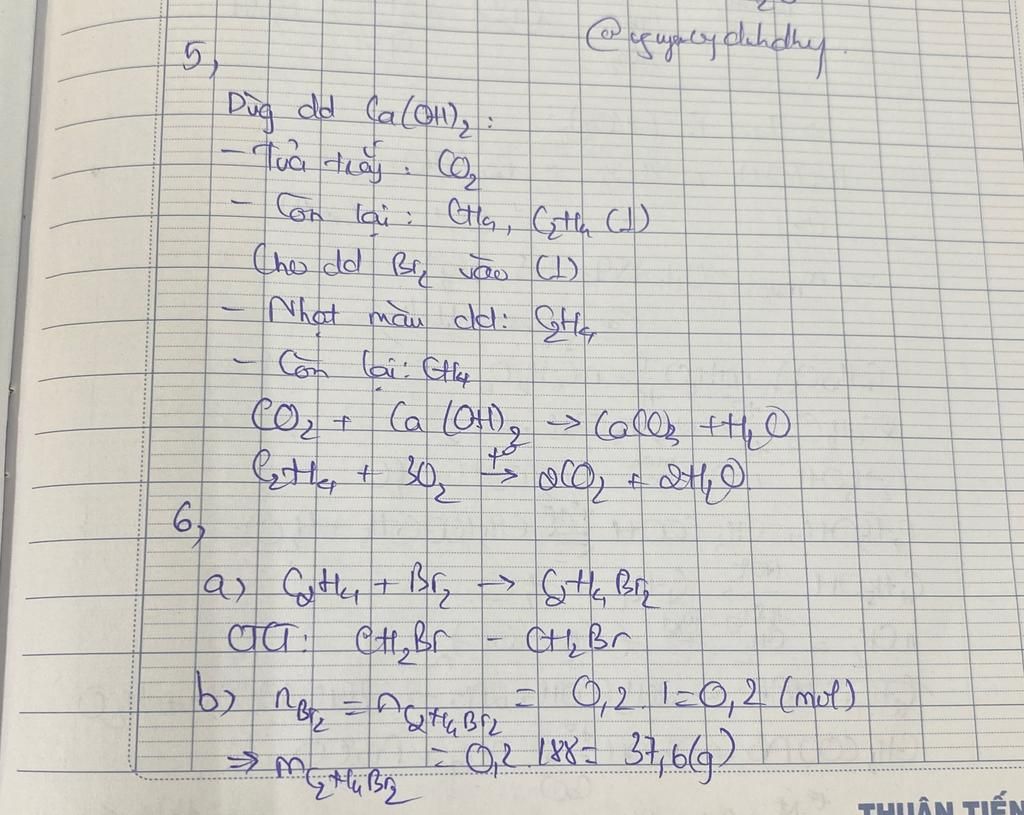 5,
Dùg dd Ca(OH)₂:
- Tủa trắg: CO₂
- Còn lại: CH₄, C₂H₄ (1)
Cho dd Br₂ vào (1)
- Nhạt màu dd: C₂H₄
- Còn lại: CH₄
CO₂ + Ca(OH)₂ → CaCO₃ + H₂O
C₂H₄ + 3O₂ →(t°) 2CO₂ + 2H₂O
6,
a) C₂H₄ + Br₂ → C₂H₄Br₂
CTCT: CH₂Br - CH₂Br
b) nBr₂ = nC₂H₄Br₂ = 0,2 . 1 = 0,2 (mol)
⇒ mC₂H₄Br₂ = 0,2 . 188 = 37,6 (g)
THUẬN TIẾN